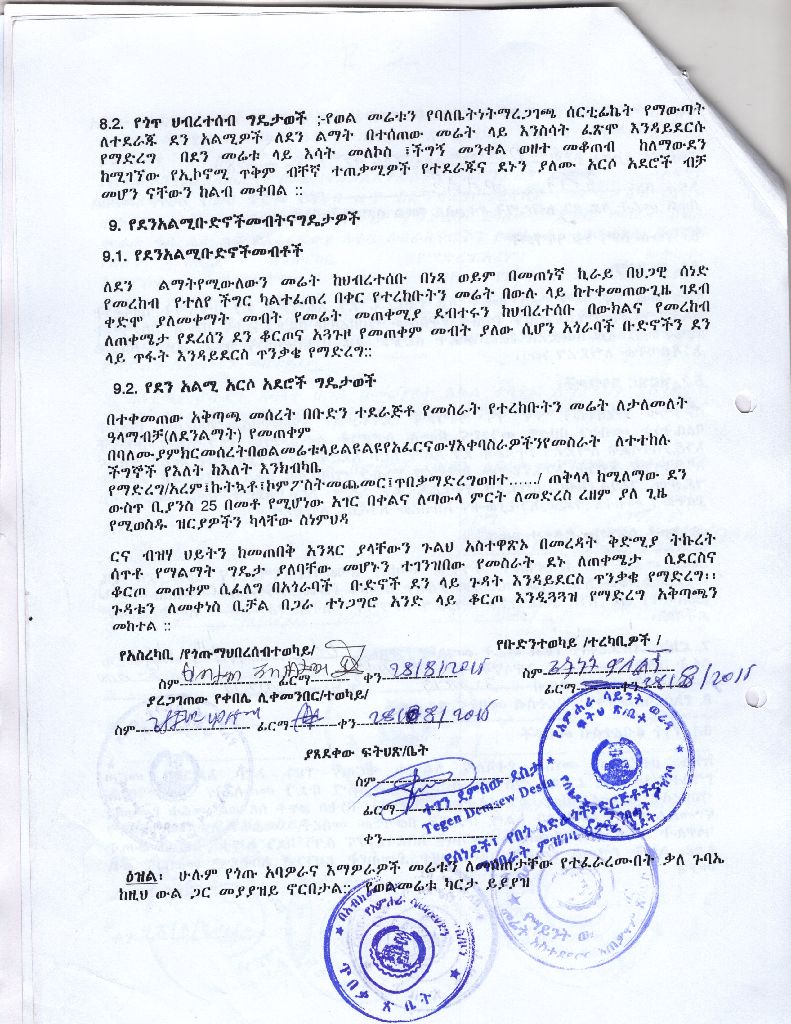 8.2. የጎጥ ህብረተሰብ ግዴታወች ;-የወል መሬቱን የባለቤትነትማረጋገጫ ሰርቲፊኬት የማውጣት
ለተደራጁ ደን አልሚዎች ለደን ልማት በተሰጠው መሬት ላይ እንስሳት ፈጽሞ እንዳይደርሱ
የማድረግ በደን መሬቱ ላይ እሳት መለኮስ ፣ችግኝ መንቀል ወዘተ መቆጠብ ከለማውደን
ከሚገኘው የኢኮኖሚ ጥቅም ብቸኛ ተጠቃሚዎች የተደራጁና ደኑን ያለሙ አርሶ አደሮች ብቻ
መሆን ናቸውን ከልብ መቀበል ፡፡
9. የደንአልሚቡድኖችመብትናግዴታዎች
9.1. የደንአልሚቡድኖችመብቶች
ለደን ልማትየሚውለውን መሬት ከህብረተሰቡ በነጻ ወይም በመጠነኛ ኪራይ በህጋዊ ሰነድ
የመረከብ የተለየ ችግር ካልተፈጠረ በቀር የተረከቡትን መሬት በውሉ ላይ ከተቀመጠውጊዜ ገደብ
ቀድሞ ያለመቀማት መብት የመሬት መጠቀሚያ ደብተሩን ከህብረተሰቡ በውክልና የመረከብ
ለጠቀሜታ የደረሰን ደን ቆርጦና አጓጉዞ የመጠቀም መብት ያለው ሲሆን አጎራባች ቡድኖችን ደን
ላይ ጥፋት እንዳይደርስ ጥንቃቄ የማድረግ፡፡
9.2. የደን አልሚ አርሶ አደሮች ግዴታወች
በተቀመጠው አቅጣጫ መሰረት በቡድን ተደራጅቶ የመስራት የተረከቡትን መሬት ለታለመለት
ዓላማብቻ(ለደንልማት) የመጠቀም
በባለሙያምክርመሰረትበወልመሬቱላይልዩልዩየአፈርናውሃእቀባስራዎችንየመስራት ለተተከሉ
ችግኞች የእለት ከእለት እንክብካቤ
የማድረግ/አረም፤ኩትኳቶ፤ኮምፖስትመጨመር፤ጥበቃማድረግወዘተ....../ ጠቅላላ ከሚለማው ደን
ውስጥ ቢያንስ 25 በመቶ የሚሆነው አገር በቀልና ለጣውላ ምርት ለመድረስ ረዘም ያለ ጊዜ
የሚወስዱ ዝርያዎችን ካላቸው ስነምህዳ
ርና ብዝሃ ህይትን ከመጠበቅ አንጻር ያላቸውን ጉልህ አስተዋጽኦ በመረዳት ቅድሚያ ትኩረት
ሰጥቶ የማልማት ግዴታ ያለባቸው መሆኑን ተገንዝበው የመስራት ደኑ ለጠቀሜታ ሲደርስና
ቆርጦ መጠቀም ሲፈለግ በአጎራባች ቡድኖች ደን ላይ ጉዳት እንዳይደርስ ጥንቃቄ የማድረግ፡፡
ጉዳቱን ለመቀነስ ቢቻል በጋራ ተነጋግሮ አንድ ላይ ቆርጦ እንዲጓጓዝ የማድረግ አቅጣጫን
መከተል ፡፡
የአስረካቢ /የጎጡማህበረሰብተወካይ/
የቡድንተወካይ /ተረካቢዎች /
ስም ፊርማ ቀን 28/8/2015
ስም
ፊርማ ቀን 28/08/2015
ያረጋገጠው የቀበሌ ሊቀመንበር/ተወካይ/
ስም ፊርማ ቀን 28/08/2015
ያጸደቀው ፍትህጽ/ቤት
ስም
ፊርማ
ተገን ደምሰው ደስታ
Tegen Demsew Desta
ቀን
ዕዝል፡ ሁሉም የጎጡ አባዎራና እማዎራዎች መሬቱን ለመስጠታቸው የተፈራረሙበት ቃለ ጉባኤ
ከዚህ ውል ጋር መያያዝይ ኖርበታል፡፡ የወልመሬቱ ካርታ ይያያዝ